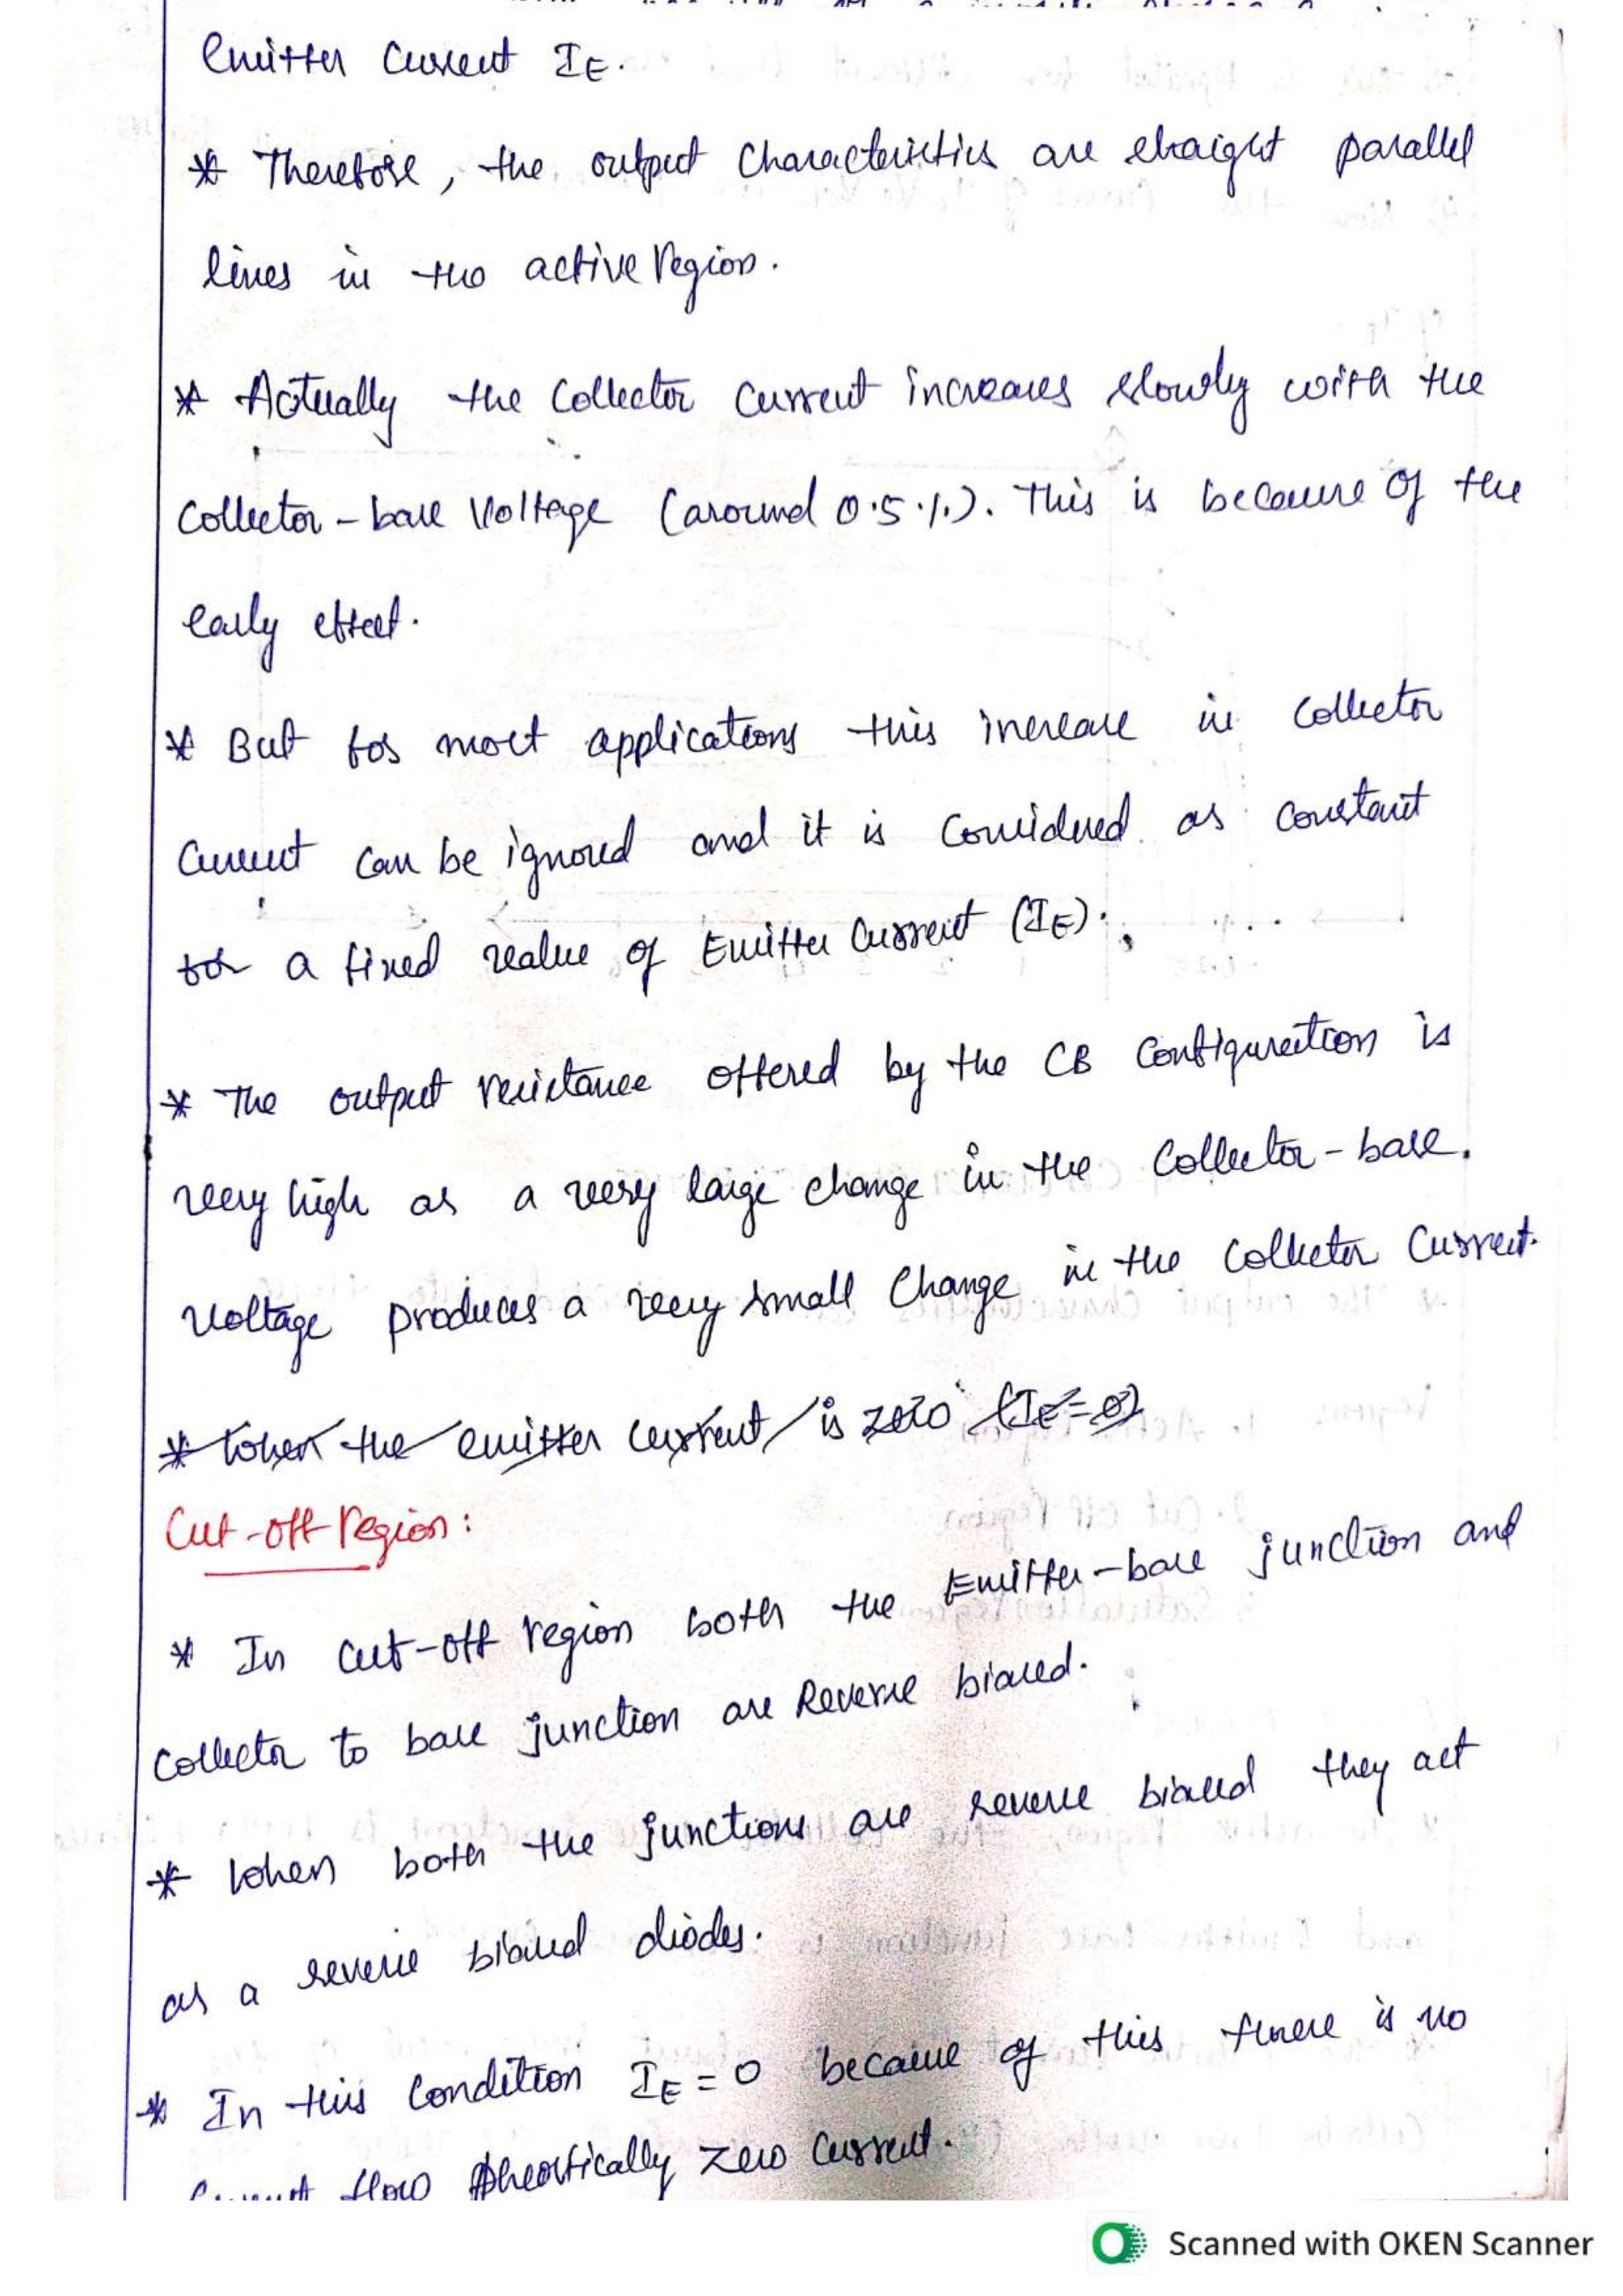 Emitter Current IE.
* Therefore, the output Characteristics are straight parallel
lines in the active region.
* Actually the Collector Current increases slowly with the
Collector-base Voltage (around 0.5%). This is because of the
early effect.
* But for most applications this increase in collector
Current can be ignored and it is Considered as constant
for a fixed value of Emitter Current (IE).
* The output resistance offered by the CB Configuration is
very high as a very large change in the Collector-base.
Voltage produces a very small Change in the Collector Current.
* When the emitter current is zero (IE=0)
Cut-off region:
* In cut-off region both the Emitter-base junction and
Collector to base junction are Reverse biased.
* When both the junctions are reverse biased they act
as a reverse biased diodes.
* In this Condition IE=0 because of this there is no
Current flow theortically zero Current.
Scanned with OKEN Scanner